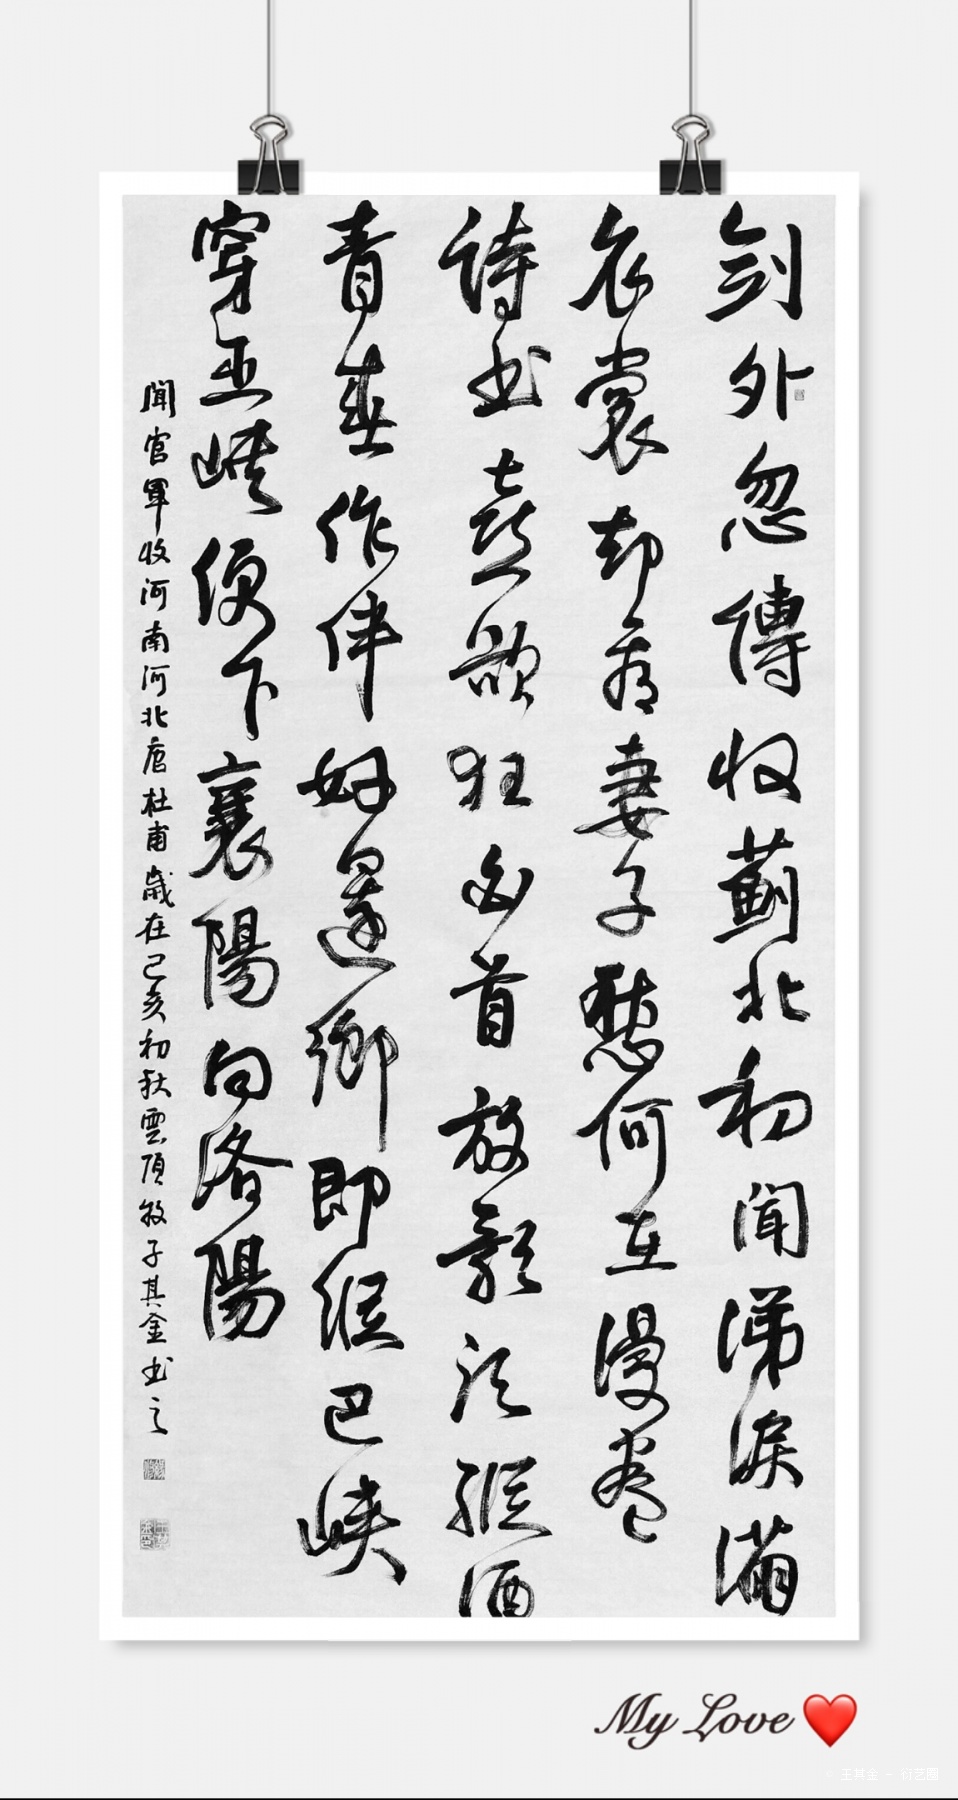 劍外忽傳收薊北初聞涕淚滿
衣裳却看妻子愁何在漫卷
詩書喜欲狂白首放歌須縱酒
青春作伴好還鄉即從巴峽
穿巫峽便下襄陽向洛陽
聞官軍收河南河北唐杜甫歲在己亥初秋雲頂牧子其金書之
My Love ❤️
王其金 - 衍艺圈